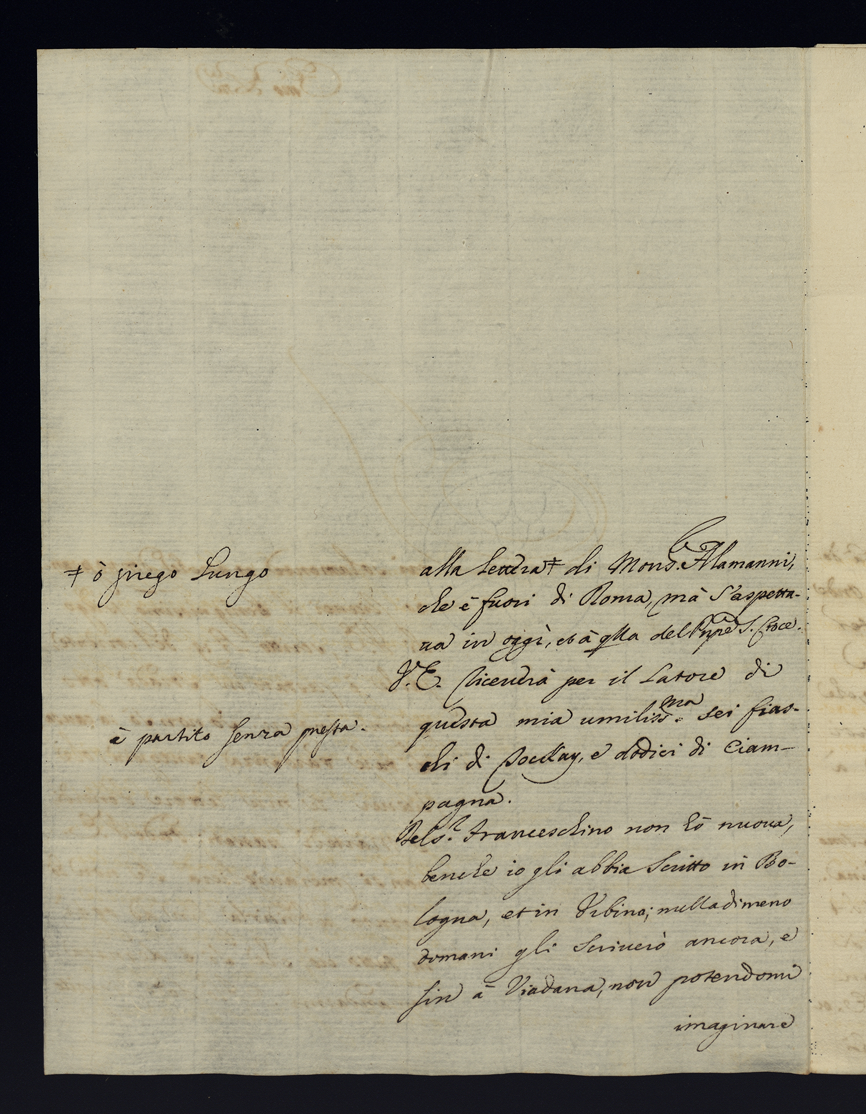 ‡ ò piego Lungo
à partito senza presta.
alla lettera ‡ di Mons.r Alamanni,
che è fuori di Roma, mà s'aspetta-
va in oggi, et à qlla del Pnpe S. Croce.
V.E. riceverà per il Latore di
questa mia umiliss.ma sei fias-
chi di Tockay, e dodici di Ciam-
pagna.
Del S.r Franceschino non hò nuova,
benche io gli abbia scritto in Bo-
logna, et in Urbino; nulladimeno
domani gli scriverò ancora, e
sin à Viadana, non potendomi
imaginare